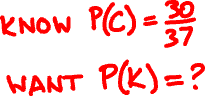 KNOW P(C) = 30/37
WANT P(K) = ?